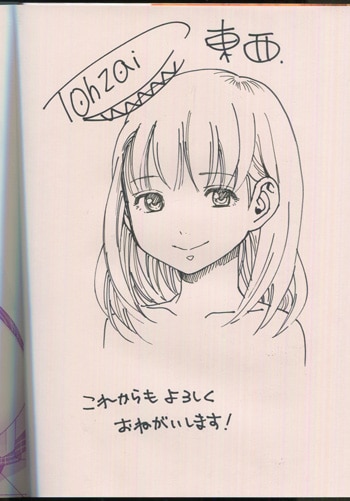 Tohzai
東西.
これからも よろしく
おねがいします!